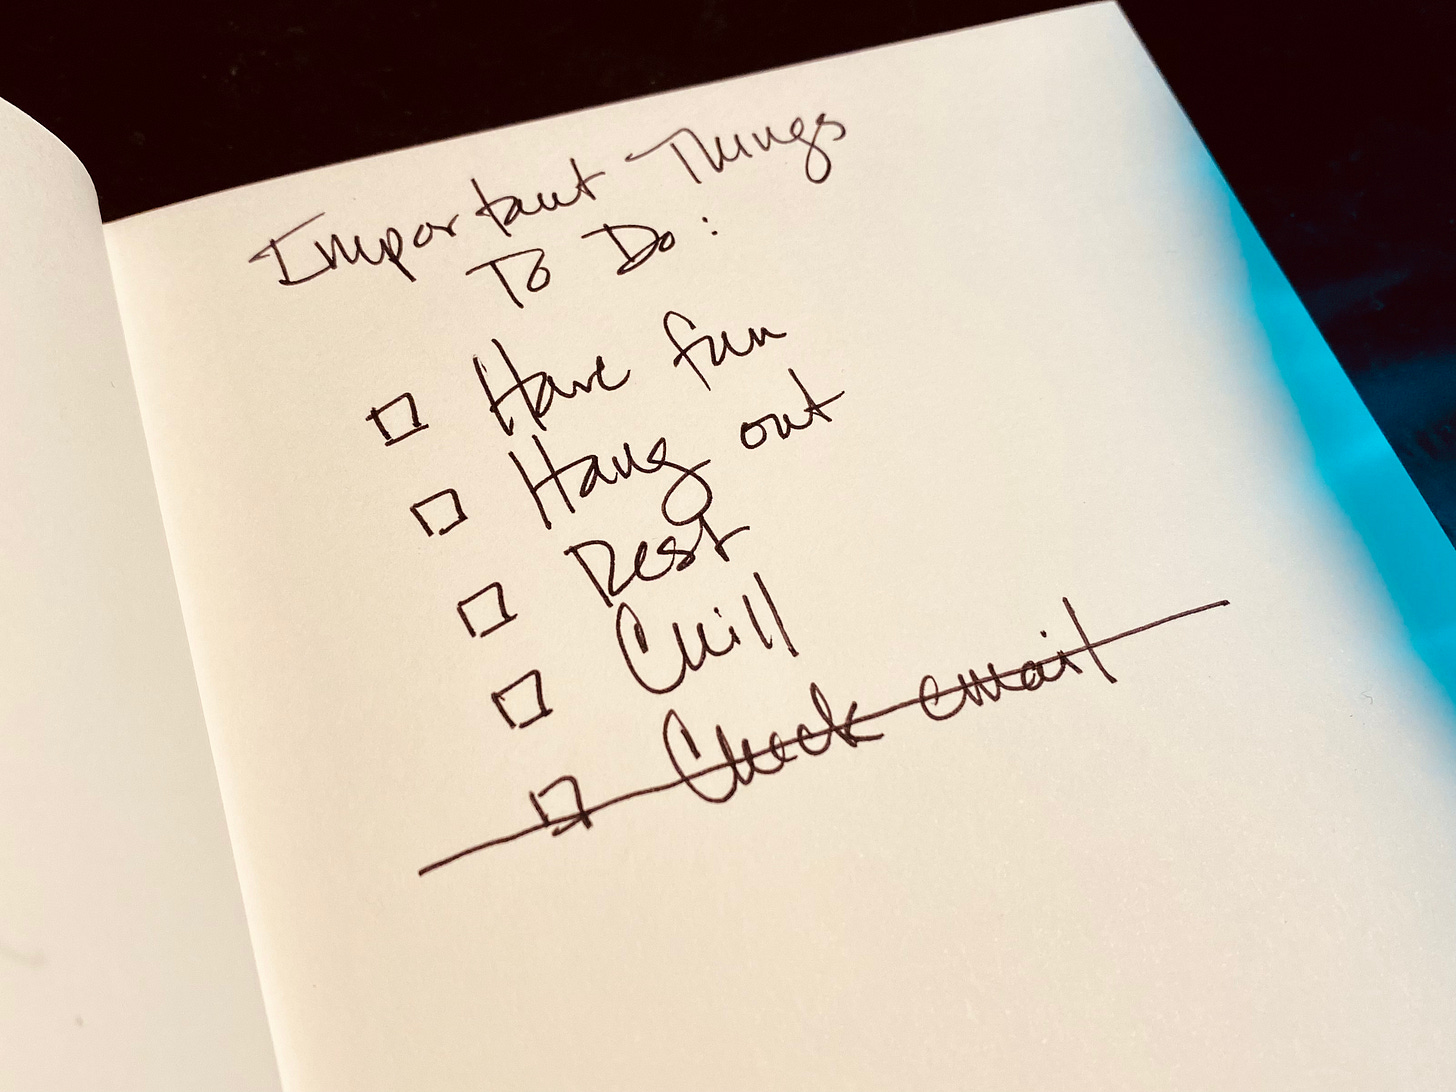 Important Things
To Do:
Have fun
Hang out
Rest
Chill
Check email